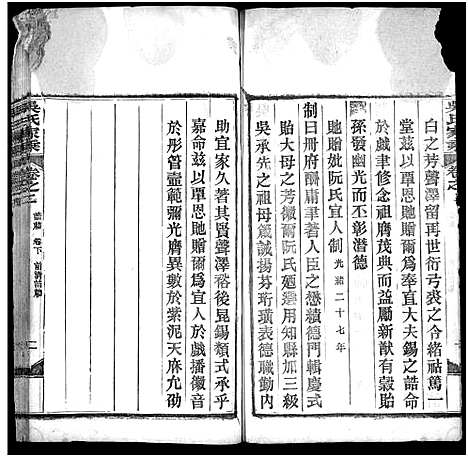 吳氏家乘
卷之
白之芳聲澤留再世衍弓裘之令緒祜篤一
堂茲以覃恩馳贈爾為奉直大夫錫之誥命
於戲聿修念祖膺茂典而益勵新猷有穀貽
孫發幽光而丕彰潛德
馳贈妣阮氏宜人制 光緒二十七年
制曰冊府酬庸聿著人臣之懋績德門輯慶式
貽大母之芳徽爾阮氏廼選用知縣加三級
吳承之祖母箴誠揚芬珩璜表德職勤內
助宜家久著其賢聲澤裕後昆錫類式承乎
嘉命茲以覃恩馳贈爾為宜人於戲播徽音
於彤管壼範彌光膺異數於紫泥天麻允劭
吳氏家乘
卷之二
誥勑 卷下 前清誥勑